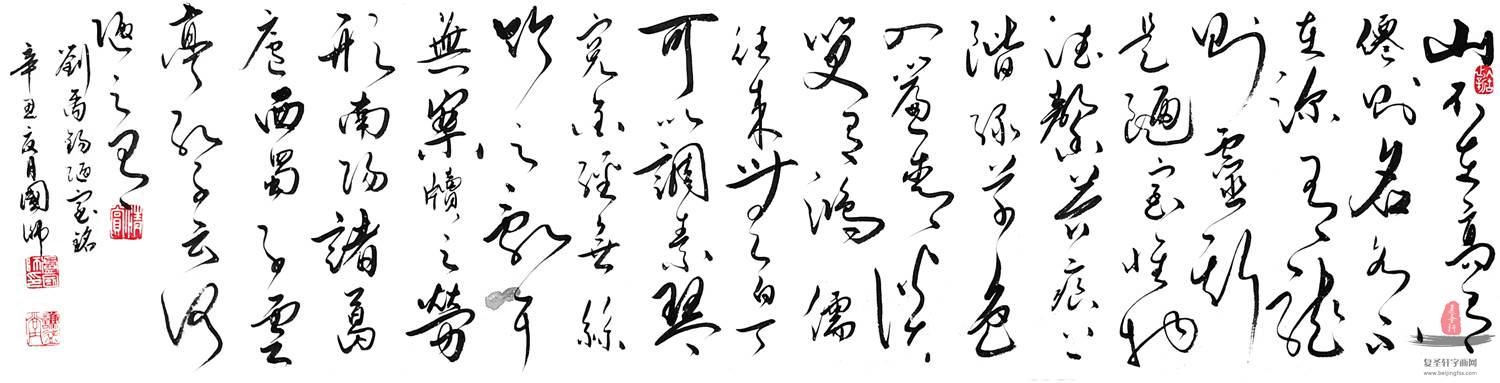 山不在高有
僊則名水不
在深有龍
則靈斯
是陋室惟吾
德馨苔痕上
階绿草色
入簾青談
笑有鴻儒
往来無白丁
可以調素琴
閱金經無絲
竹之亂耳
無案牘之勞
形南陽諸葛
廬西蜀子雲
亭孔子云何
陋之有
劉禹錫陋室銘
辛丑夏月國師
复圣轩字画网
www.beijingfss.com